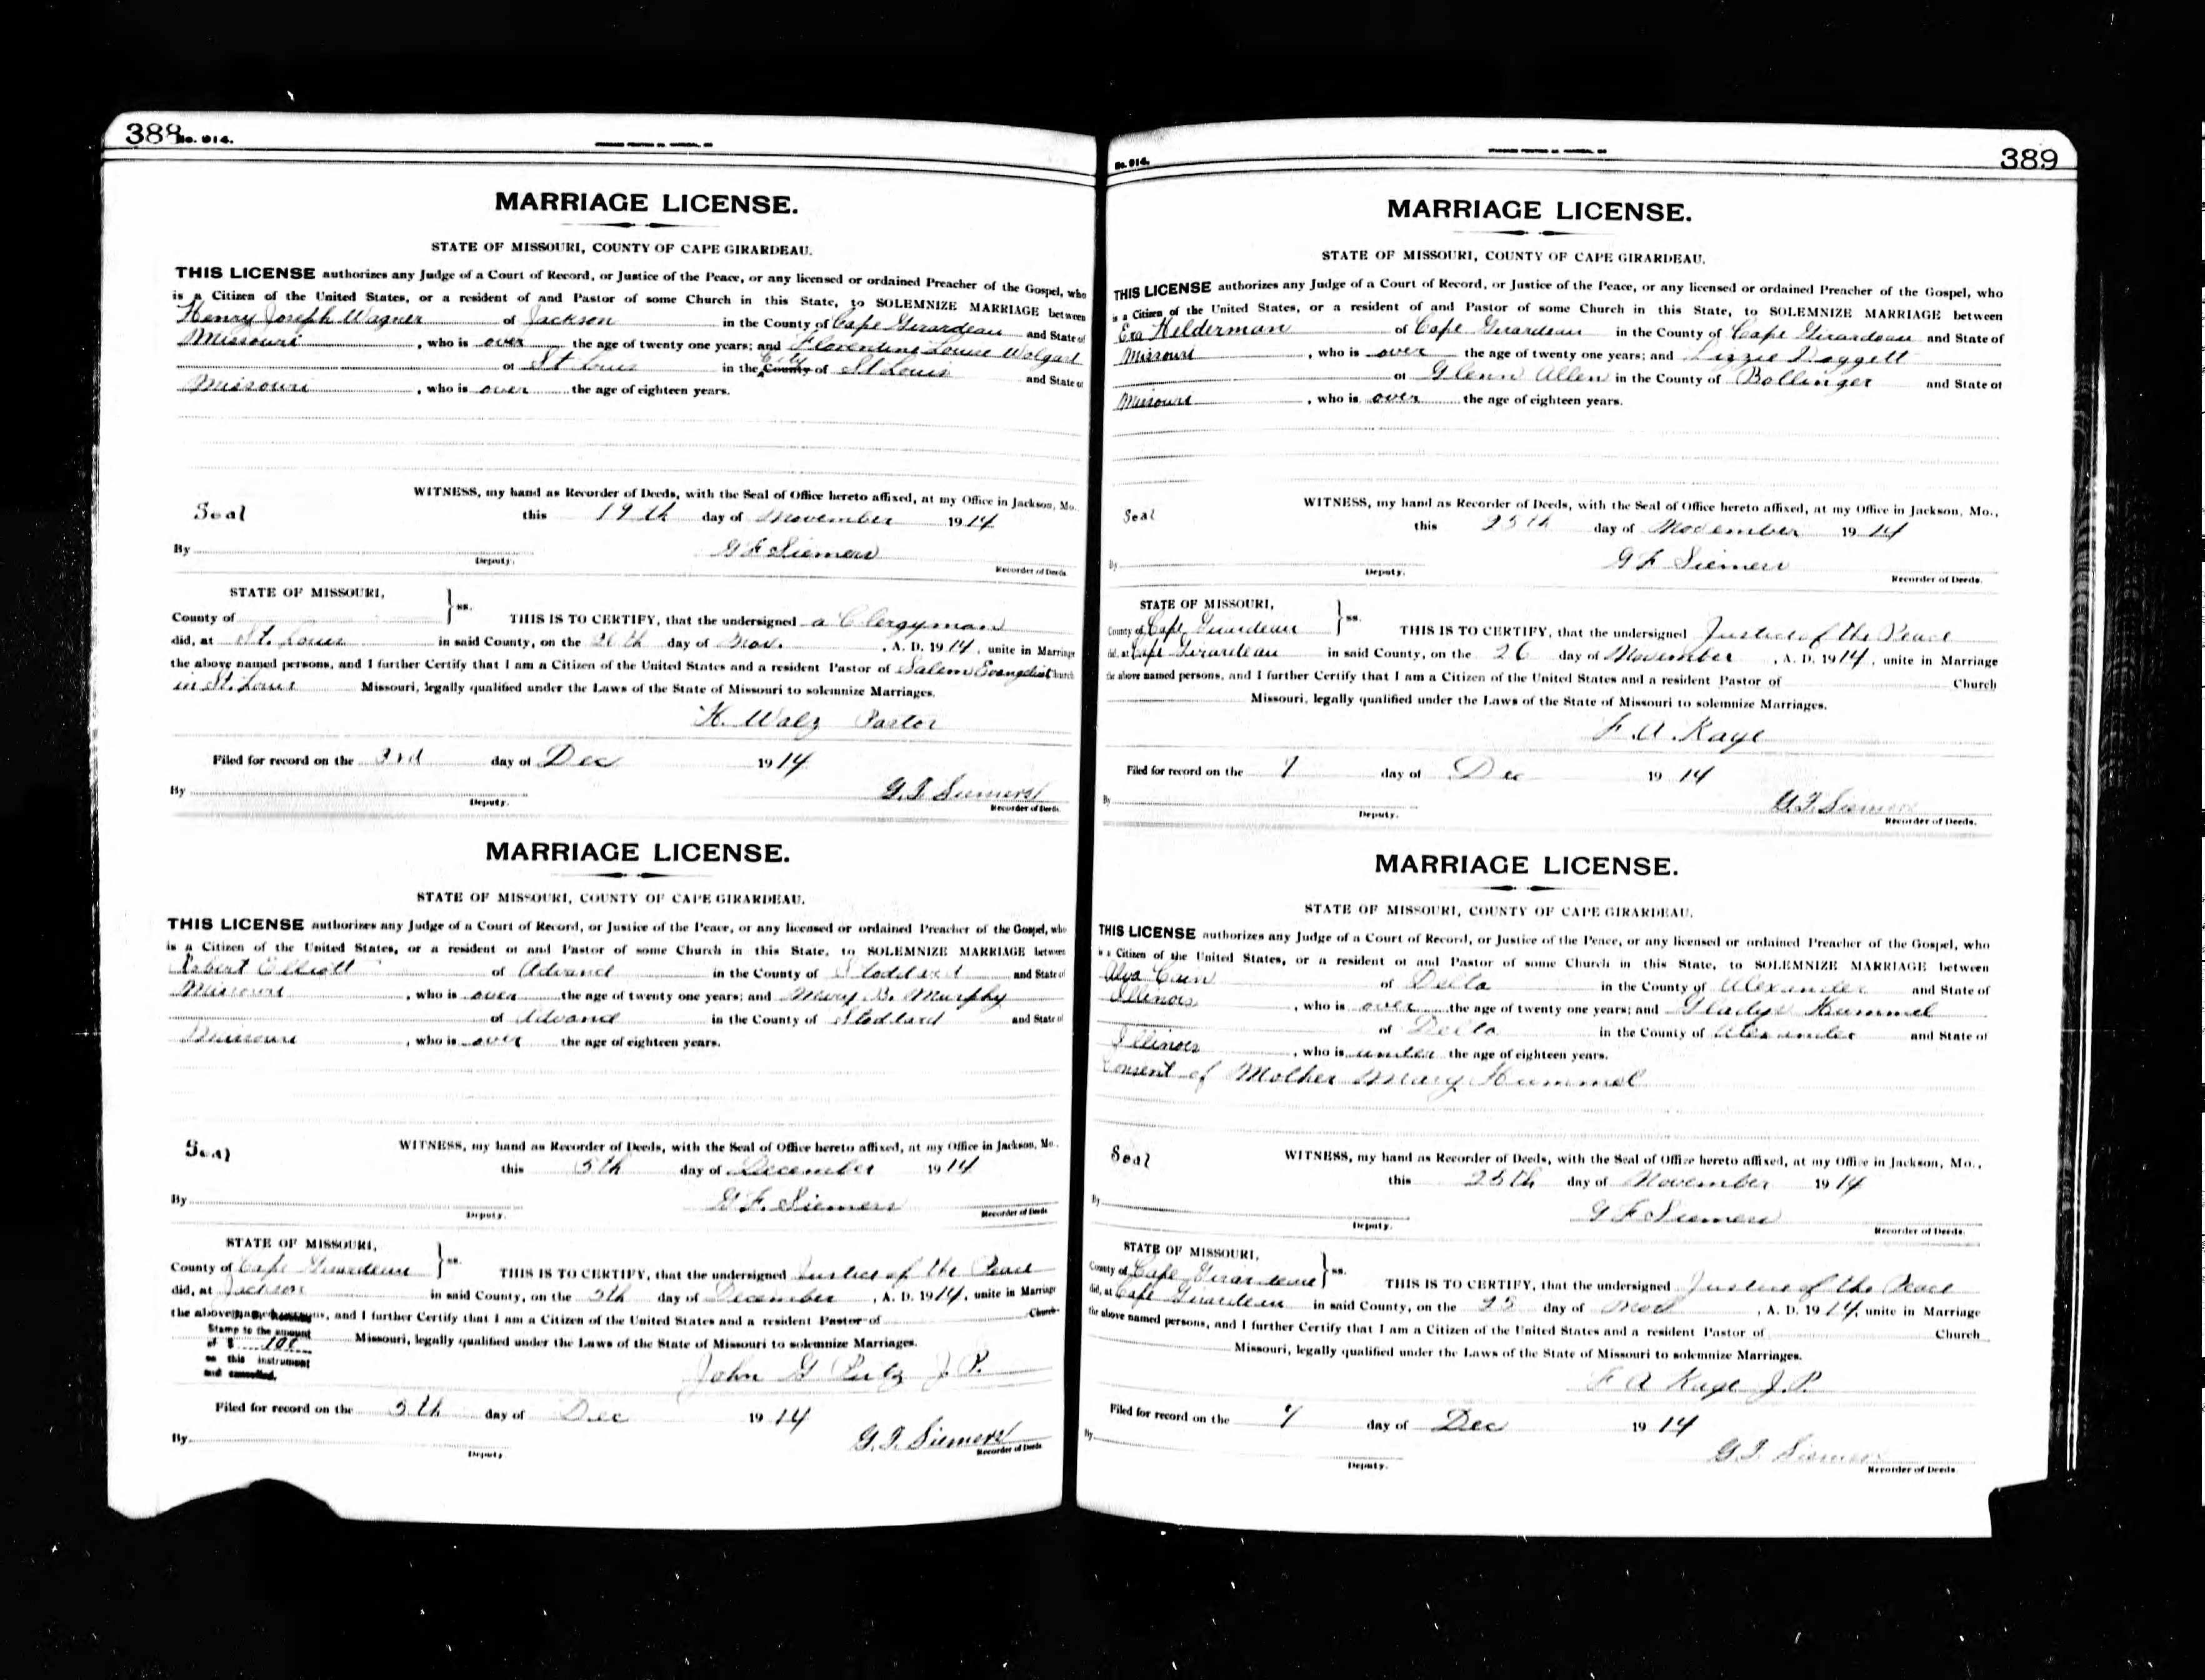 388
No. 914.
MARRIAGE LICENSE.
STATE OF MISSOURI, COUNTY OF CAPE GIRARDEAU.
THIS LICENSE authorizes any Judge of a Court of Record, or Justice of the Peace, or any licensed or ordained Preacher of the Gospel, who
is a Citizen of the United States, or a resident of and Pastor of some Church in this State, to SOLEMNIZE MARRIAGE between
Henry Joseph Wagner of Jackson in the County of Cape Girardeau and State of
Missouri, who is over the age of twenty one years; and Florentine Louise Wolgast
of St Louis in the City County of St Louis and State of
Missouri, who is over the age of eighteen years.
WITNESS, my hand as Recorder of Deeds, with the Seal of Office hereto affixed, at my Office in Jackson, Mo.
Seal this 19th day of November 1914
By G F Siemers
Deputy. Recorder of Deeds.
STATE OF MISSOURI,
County of ss. THIS IS TO CERTIFY, that the undersigned a Clergyman
did, at St. Louis in said County, on the 26th day of Nov., A. D. 1914, unite in Marriage
the above named persons, and I further Certify that I am a Citizen of the United States and a resident Pastor of Salem Evangelist Church
in St. Louis Missouri, legally qualified under the Laws of the State of Missouri to solemnize Marriages.
H. Walz Pastor
Filed for record on the 3rd day of Dec 1914
By G. F. Siemers
Deputy. Recorder of Deeds.
MARRIAGE LICENSE.
STATE OF MISSOURI, COUNTY OF CAPE GIRARDEAU.
THIS LICENSE authorizes any Judge of a Court of Record, or Justice of the Peace, or any licensed or ordained Preacher of the Gospel, who
is a Citizen of the United States, or a resident of and Pastor of some Church in this State, to SOLEMNIZE MARRIAGE between
Robert Elliott of Advance in the County of Stoddard and State of
Missouri, who is over the age of twenty one years; and Mary B. Murphy
of Advance in the County of Stoddard and State of
Missouri, who is over the age of eighteen years.
WITNESS, my hand as Recorder of Deeds, with the Seal of Office hereto affixed, at my Office in Jackson, Mo.
Seal this 5th day of December 1914
By G F. Siemers
Deputy. Recorder of Deeds
STATE OF MISSOURI,
County of Cape Girardeau ss. THIS IS TO CERTIFY, that the undersigned Justice of the Peace
did, at Jackson in said County, on the 5th day of December, A. D. 1914, unite in Marriage
the above named persons, and I further Certify that I am a Citizen of the United States and a resident Pastor of Church
Missouri, legally qualified under the Laws of the State of Missouri to solemnize Marriages.
Stamp to the amount
of $ 10c
on this instrument
and cancelled.
John G Putz J. P.
Filed for record on the 5th day of Dec 1914
By G. F. Siemers
Deputy Recorder of Deeds
No. 914.
389
MARRIAGE LICENSE.
STATE OF MISSOURI, COUNTY OF CAPE GIRARDEAU.
THIS LICENSE authorizes any Judge of a Court of Record, or Justice of the Peace, or any licensed or ordained Preacher of the Gospel, who
is a Citizen of the United States, or a resident of and Pastor of some Church in this State, to SOLEMNIZE MARRIAGE between
Era Helderman of Cape Girardeau in the County of Cape Girardeau and State of
Missouri, who is over the age of twenty one years; and Lizzie Baggett
of Glenn Allen in the County of Bollinger and State of
Missouri, who is over the age of eighteen years.
WITNESS, my hand as Recorder of Deeds, with the Seal of Office hereto affixed, at my Office in Jackson, Mo.,
Seal this 25th day of November 1914
By G F Siemers
Deputy. Recorder of Deeds.
STATE OF MISSOURI,
County of Cape Girardeau ss. THIS IS TO CERTIFY, that the undersigned Justice of the Peace
did, at Cape Girardeau in said County, on the 26 day of November, A. D. 1914, unite in Marriage
the above named persons, and I further Certify that I am a Citizen of the United States and a resident Pastor of Church
Missouri, legally qualified under the Laws of the State of Missouri to solemnize Marriages.
F. A. Kage
Filed for record on the 7 day of Dec 1914
By G. F. Siemers
Deputy. Recorder of Deeds.
MARRIAGE LICENSE.
STATE OF MISSOURI, COUNTY OF CAPE GIRARDEAU.
THIS LICENSE authorizes any Judge of a Court of Record, or Justice of the Peace, or any licensed or ordained Preacher of the Gospel, who
is a Citizen of the United States, or a resident of and Pastor of some Church in this State, to SOLEMNIZE MARRIAGE between
Alva Cain of Delta in the County of Alexander and State of
Illinois, who is over the age of twenty one years; and Gladys Hummel
of Delta in the County of Alexander and State of
Illinois, who is under the age of eighteen years.
Consent of Mother Mary Hummel
WITNESS, my hand as Recorder of Deeds, with the Seal of Office hereto affixed, at my Office in Jackson, Mo.,
Seal this 25th day of November 1914
By G F Siemers
Deputy. Recorder of Deeds.
STATE OF MISSOURI,
County of Cape Girardeau ss. THIS IS TO CERTIFY, that the undersigned Justice of the Peace
did, at Cape Girardeau in said County, on the 25 day of Nov, A. D. 1914, unite in Marriage
the above named persons, and I further Certify that I am a Citizen of the United States and a resident Pastor of Church
Missouri, legally qualified under the Laws of the State of Missouri to solemnize Marriages.
F A Kage J. P.
Filed for record on the 7 day of Dec 1914
By G. F. Siemers
Deputy. Recorder of Deeds.